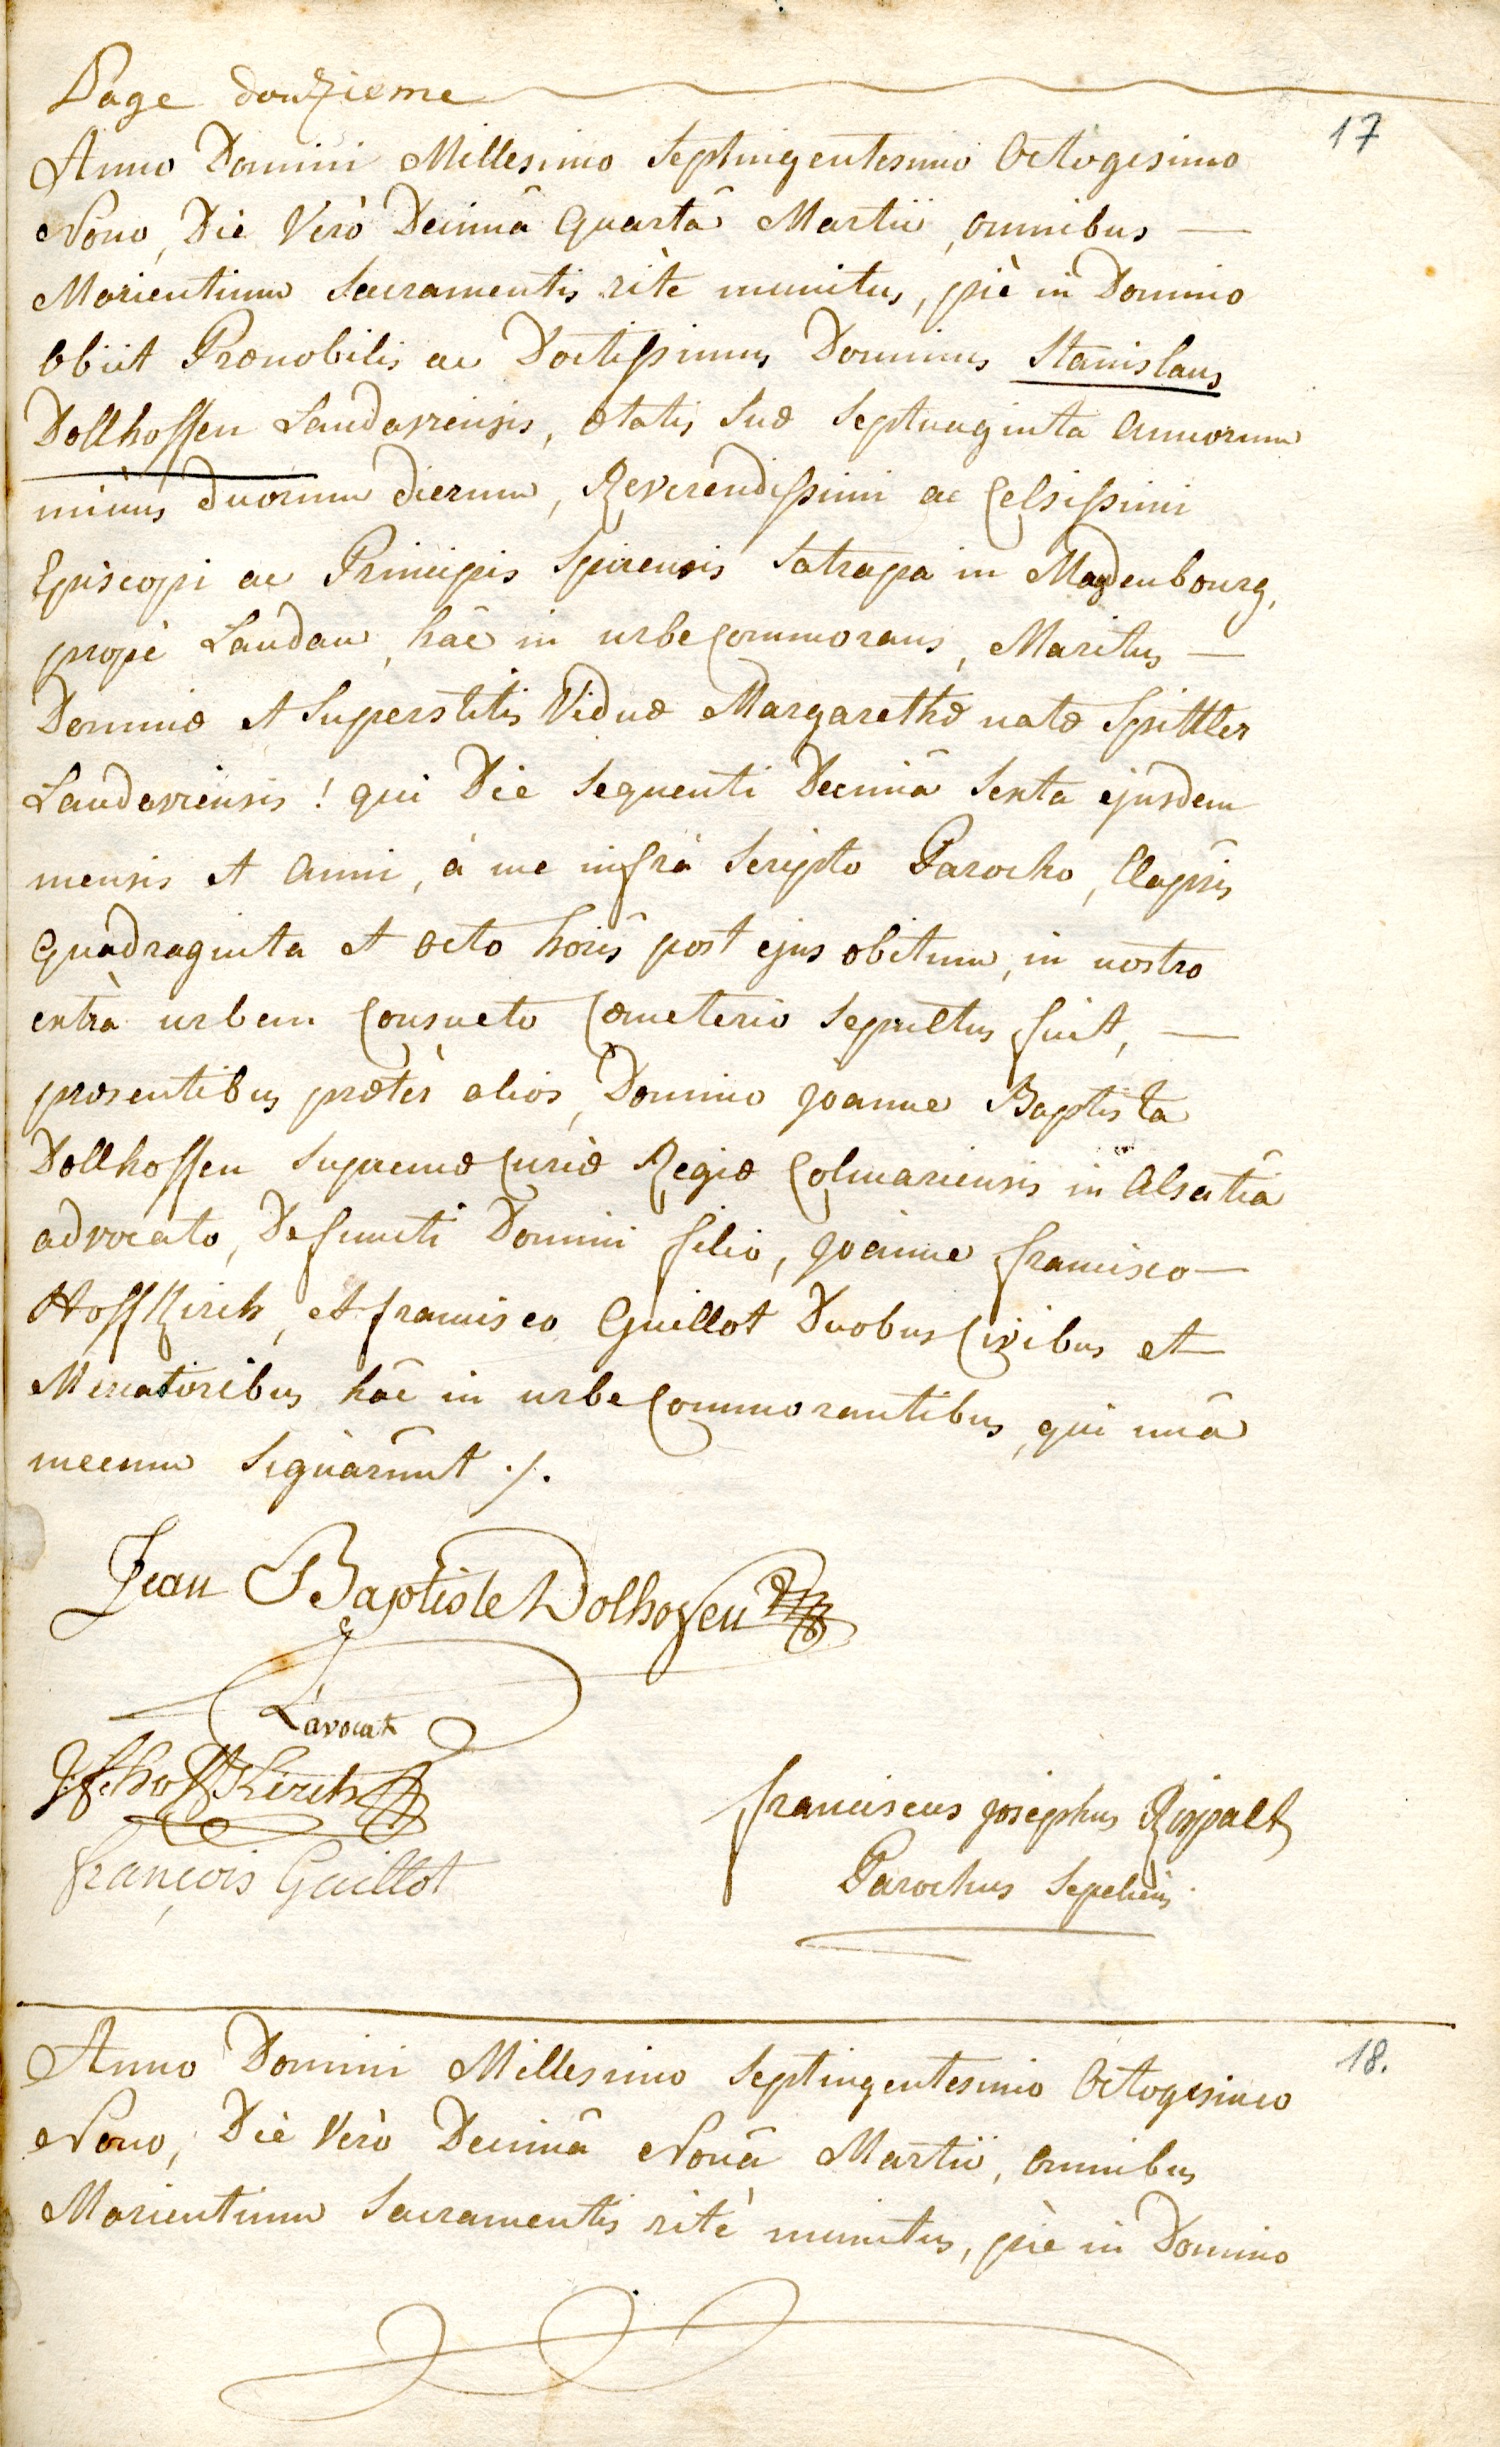 Page douzieme
17
Anno Domini Millesimo Septingentesimo Octogesimo
Nono, Die Verò Decimâ Quartâ Martii, omnibus —
Morientium Sacramentis ritè munitus, piè in Domino
Obiit Prænobilis ac Doctissimus Dominus Stanislaus
Dollhoffen Landaviensis, ætatis suæ septuaginta annorum
minus duorum dierum, Reverendissimi ac Celsissimi
Episcopi ac Principis Spirensis Satrapa in Madenbourg,
propè Landau, hâc in urbe Commorans, Maritus —
Dominæ et Superstitis Viduæ Margarethæ natæ Spittler
Landaviensis! qui Die sequenti Decimâ Sexta ejusdem
mensis et anni, à me infrà Scripto Parocho, Elapsis
Quadraginta et octo horis post ejus obitum, in nostro
extrà urbem Consueto Cœmeterio Sepultus fuit, —
præsentibus prætèr alios, Domino Joanne Baptista
Dollhoffen Supremæ Curiæ Regiæ Colmariensis in Alsatiâ
advocato, Defuncti Domini filio, Joanne francisco —
Hoffkirch, et francisco Guillot Duobus Civibus et
Mercatoribus hâc in urbe Commorantibus, qui unâ
mecum signàrunt ./.
Jean Baptiste Dolhofen
L'avocat
J.f. hoffkirch
françois Guillot
franciscus josephus Rispalt
Parochus Sepeliens.
18.
Anno Domini Millesimo Septingentesimo Octogesimo
Nono, Diè Verò Decimâ Nonâ Martii, omnibus
Morientium Sacramentis ritè munitus, piè in Domino